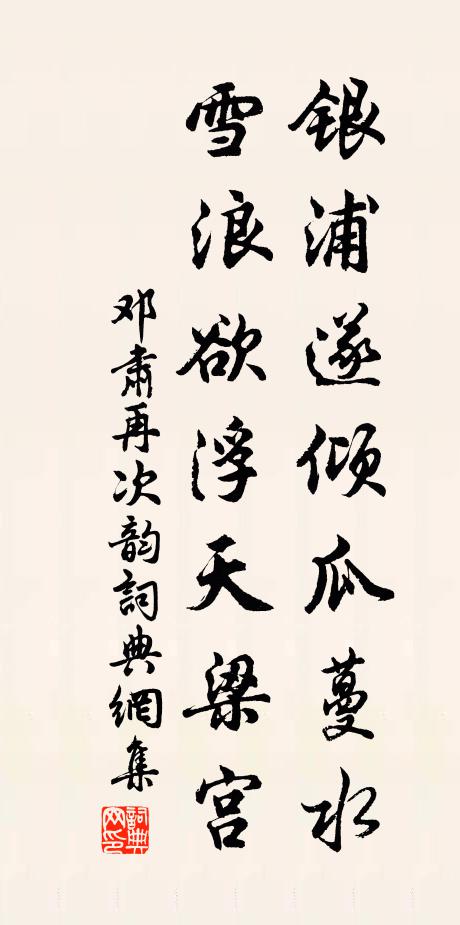 银浦遂倾瓜蔓水
雪浪欲浮天梁宫
邓肃再次韵詞典網集
詞典网印